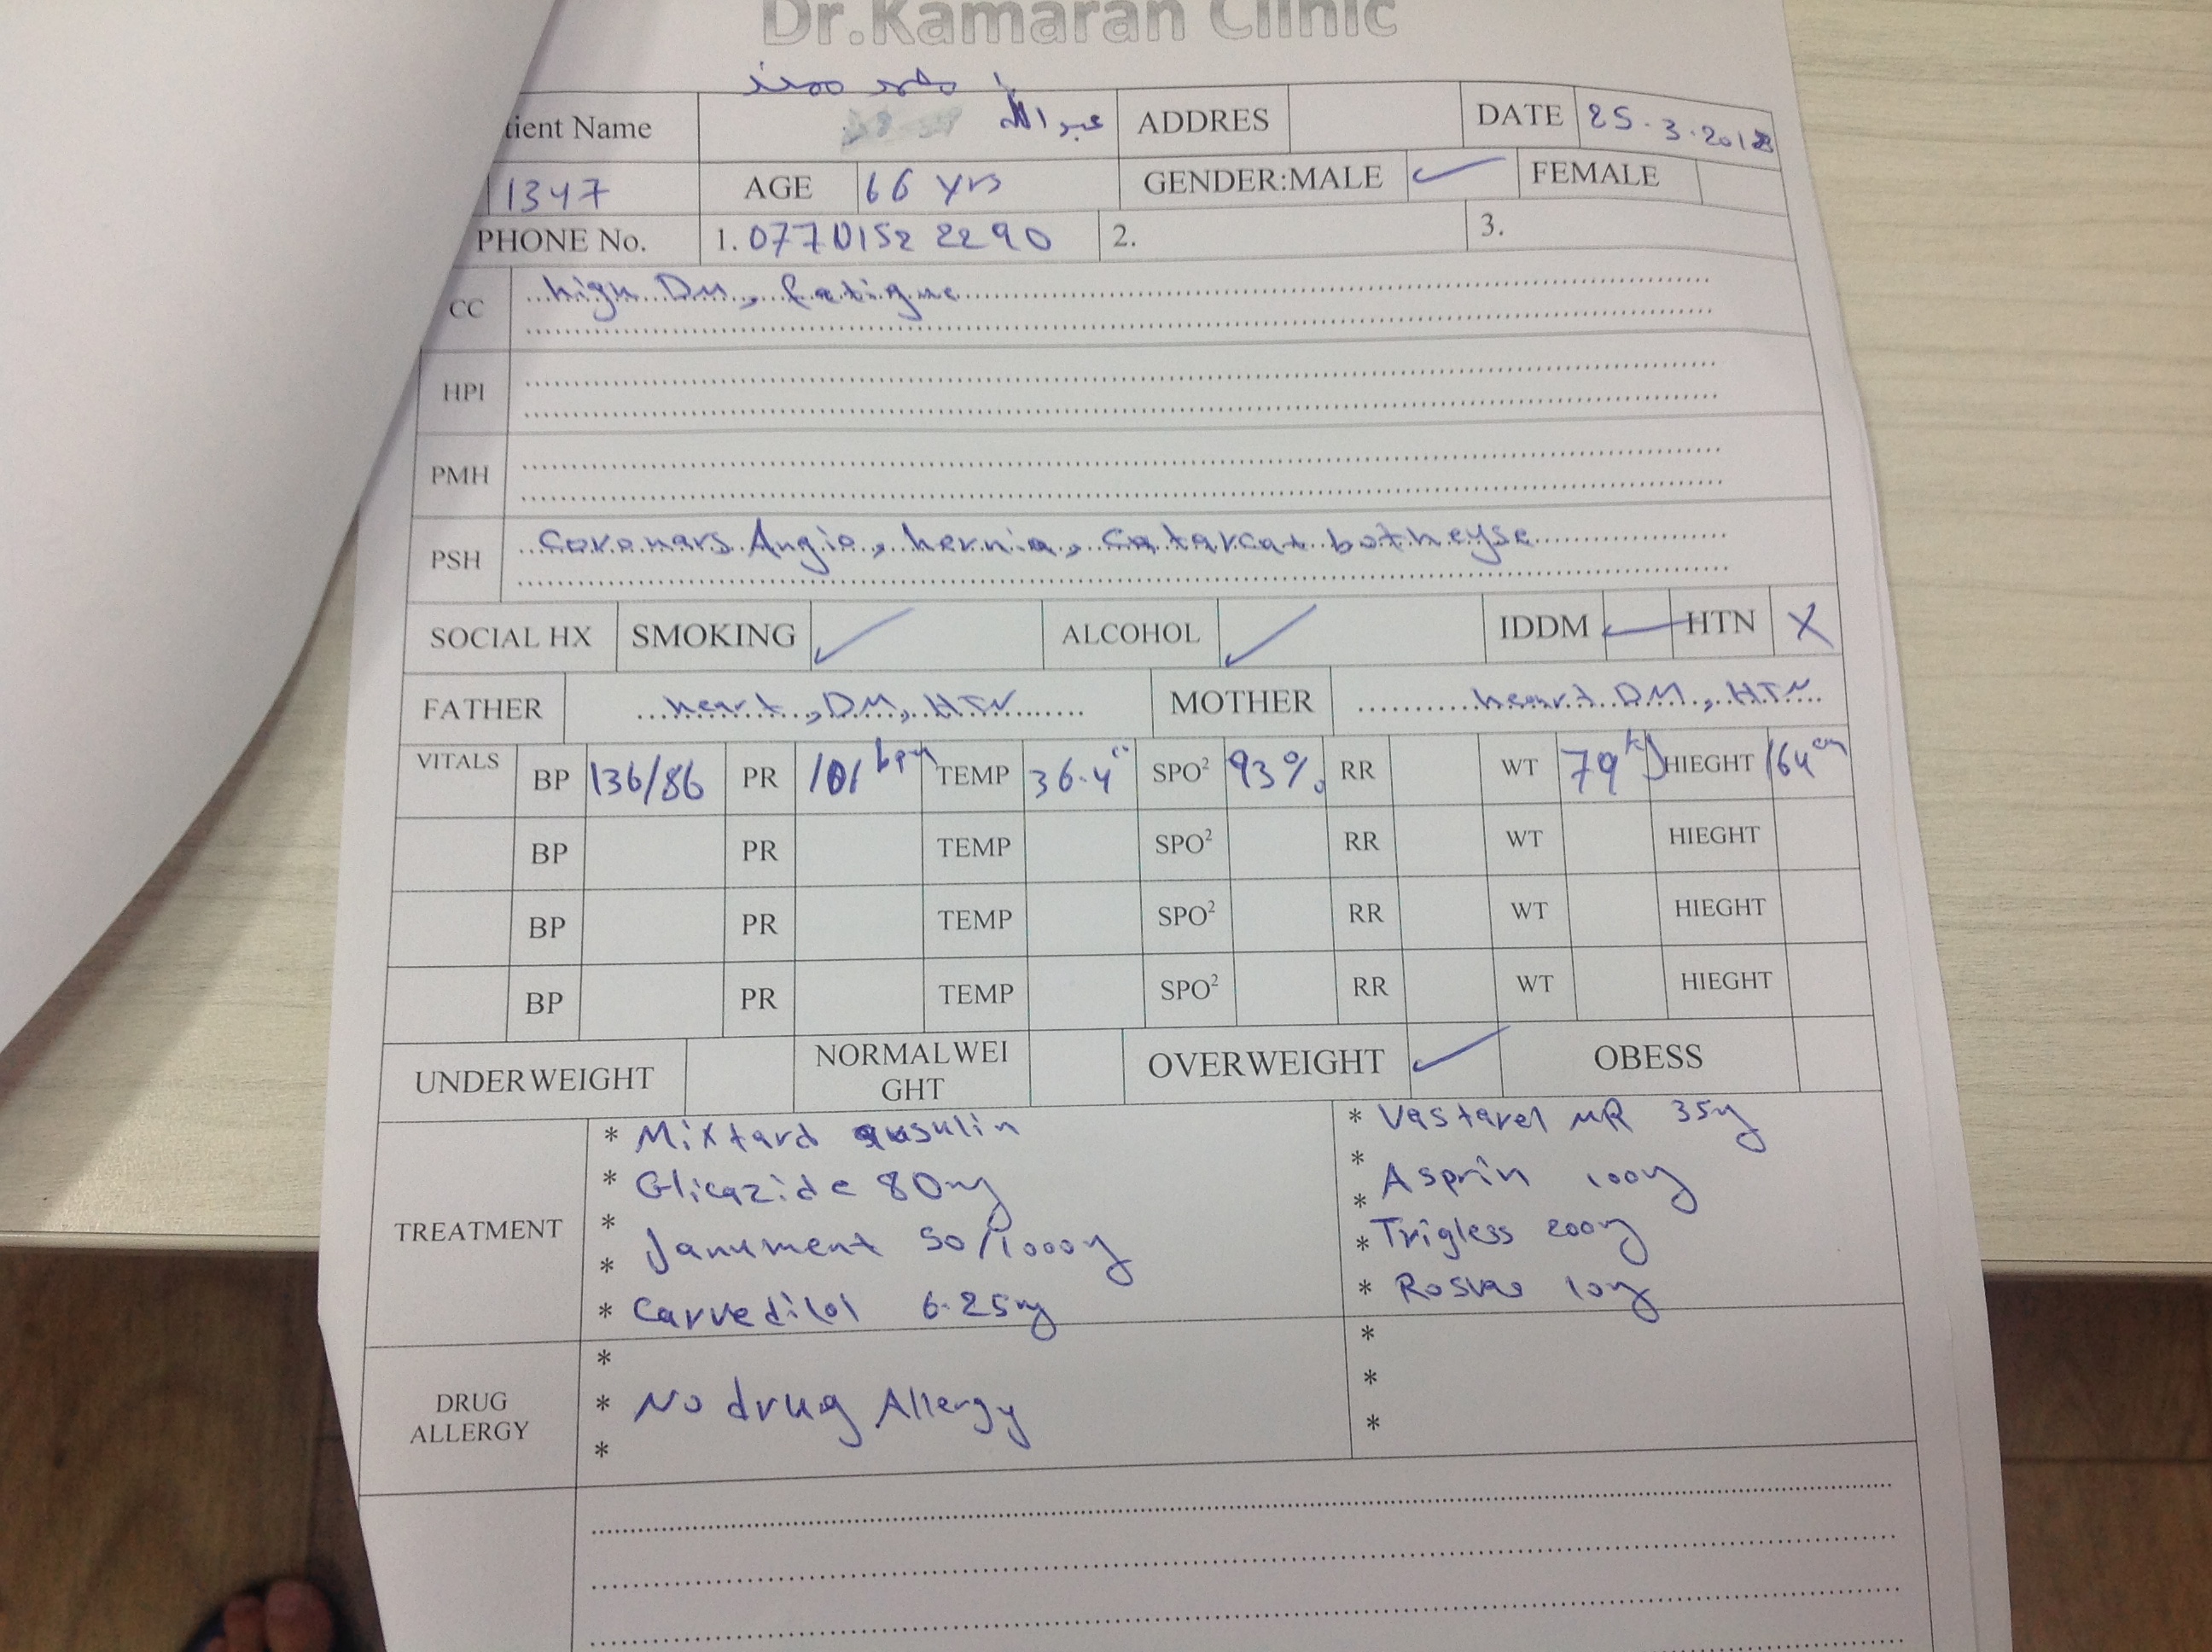 Dr.Kamaran Clinic
tient Name عبد الله ADDRES DATE 25.3.2018
1347 AGE 66 yrs GENDER:MALE ✓ FEMALE
PHONE No. 1. 0770152 2290 2. 3.
CC high DM, fatigue
HPI
PMH
PSH Coronars Angio, hernia, Catarcat botheyse
SOCIAL HX SMOKING ✓ ALCOHOL ✓ IDDM ✓ HTN X
FATHER heart, DM, HTN MOTHER heart DM, HTN
VITALS BP 136/86 PR 101 bpm TEMP 36.4 SPO² 93% RR WT 79 kg HIEGHT 164 cm
BP PR TEMP SPO² RR WT HIEGHT
BP PR TEMP SPO² RR WT HIEGHT
BP PR TEMP SPO² RR WT HIEGHT
UNDERWEIGHT NORMALWEI
GHT OVERWEIGHT ✓ OBESS
TREATMENT
* Mixtard insulin
* Glicazide 80mg
* Janument 50/1000mg
*
* Carvedilol 6.25mg
* Vastarel MR 35mg
*
* Asprin 100mg
* Trigless 200mg
* 10mg
DRUG
ALLERGY
*
* No drug Allergy
*
*
*
*